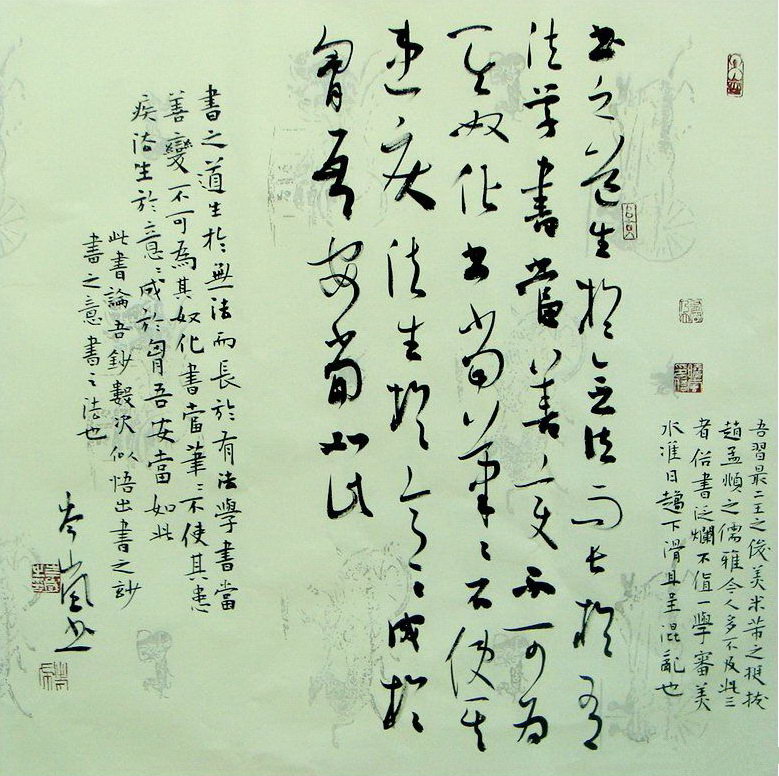 吾習最二王之俊美米芾之挺拔
趙孟頫之儒雅今人多不及此三
者俗書泛爛不值一學審美
水準日趨下滑且呈混亂也
书之道生於无法而長於有
法学書當善变不可为
其奴化书當筆〻不使其
患疾法生於意〻成於
胷吾安當如此
書之道生於無法而長於有法學書當
善變不可為其奴化書當筆〻不使其患
疾法生於意〻成於胷吾安當如此
此書論吾鈔數次似悟出書之妙
書之意書之法也
岑嵐书